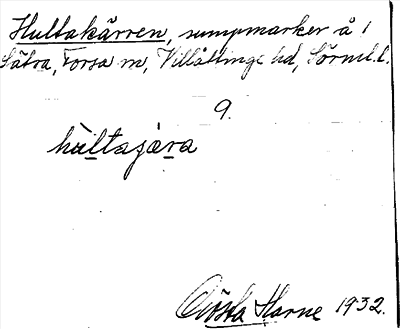 Hultakärren, sumpmarker å 1
Sätra, Forsa sn, Villåttinge hd, Sörml. l.
9.
hultajæra
Gösta Harne 1932.